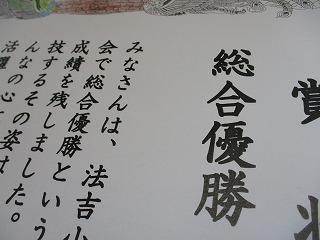 賞状
総合優勝
みなさんは、法吉小
会で総合優勝という
成績を残しました。
技するその姿は
んなの心に
活躍